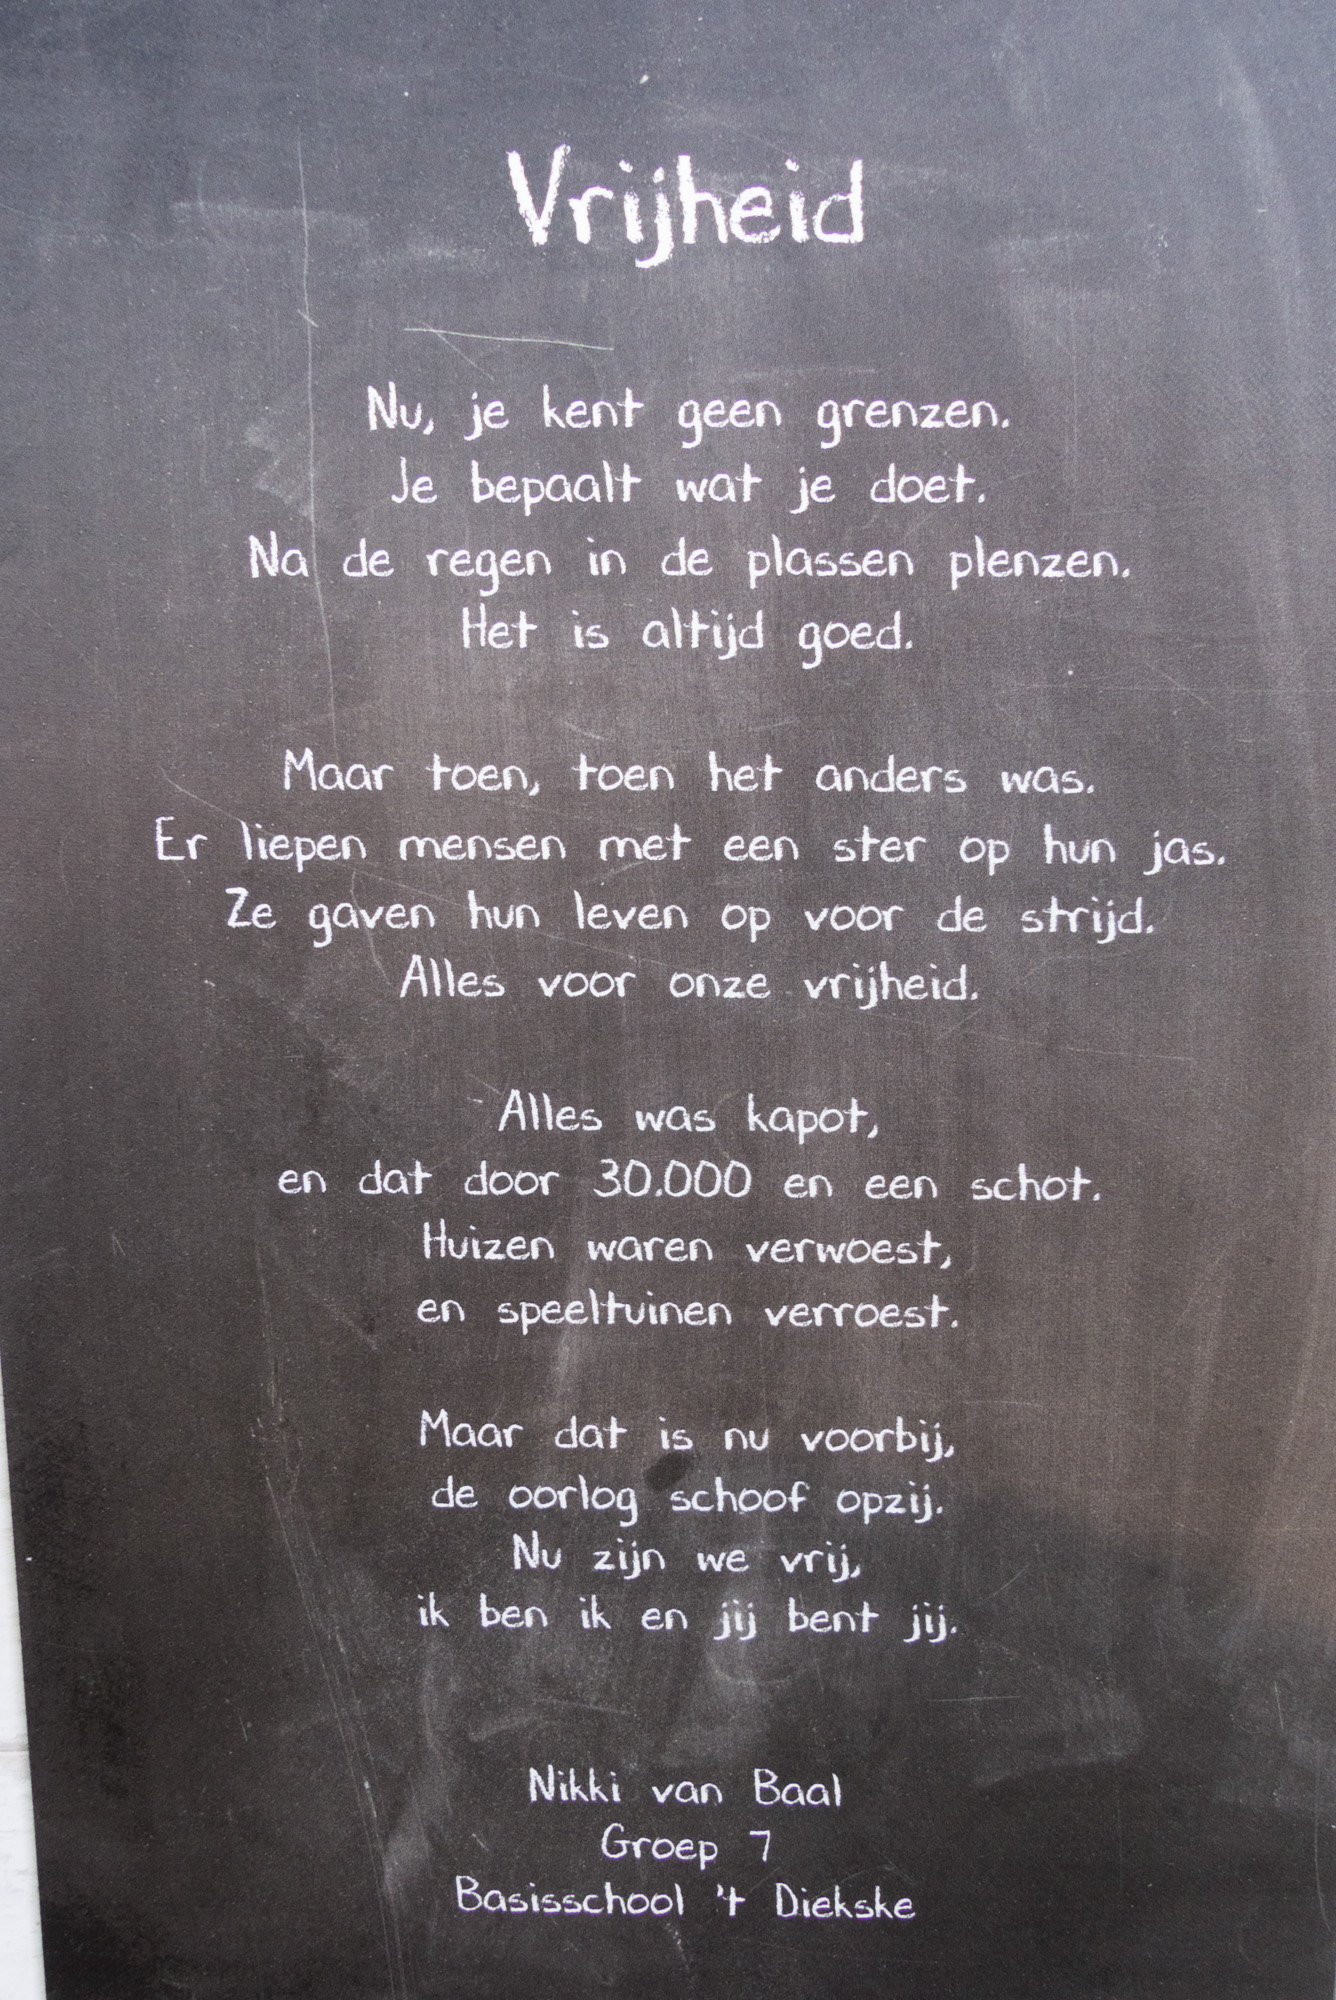 Vrijheid
Nu, je kent geen grenzen.
Je bepaalt wat je doet.
Na de regen in de plassen plenzen.
Het is altijd goed.
Maar toen, toen het anders was.
Er liepen mensen met een ster op hun jas.
Ze gaven hun leven op voor de strijd.
Alles voor onze vrijheid.
Alles was kapot,
en dat door 30.000 en een schot.
Huizen waren verwoest,
en speeltuinen verroest.
Maar dat is nu voorbij,
de oorlog schoof opzij.
Nu zijn we vrij,
ik ben ik en jij bent jij.
Nikki van Baal
Groep 7
Basisschool 't Diekske